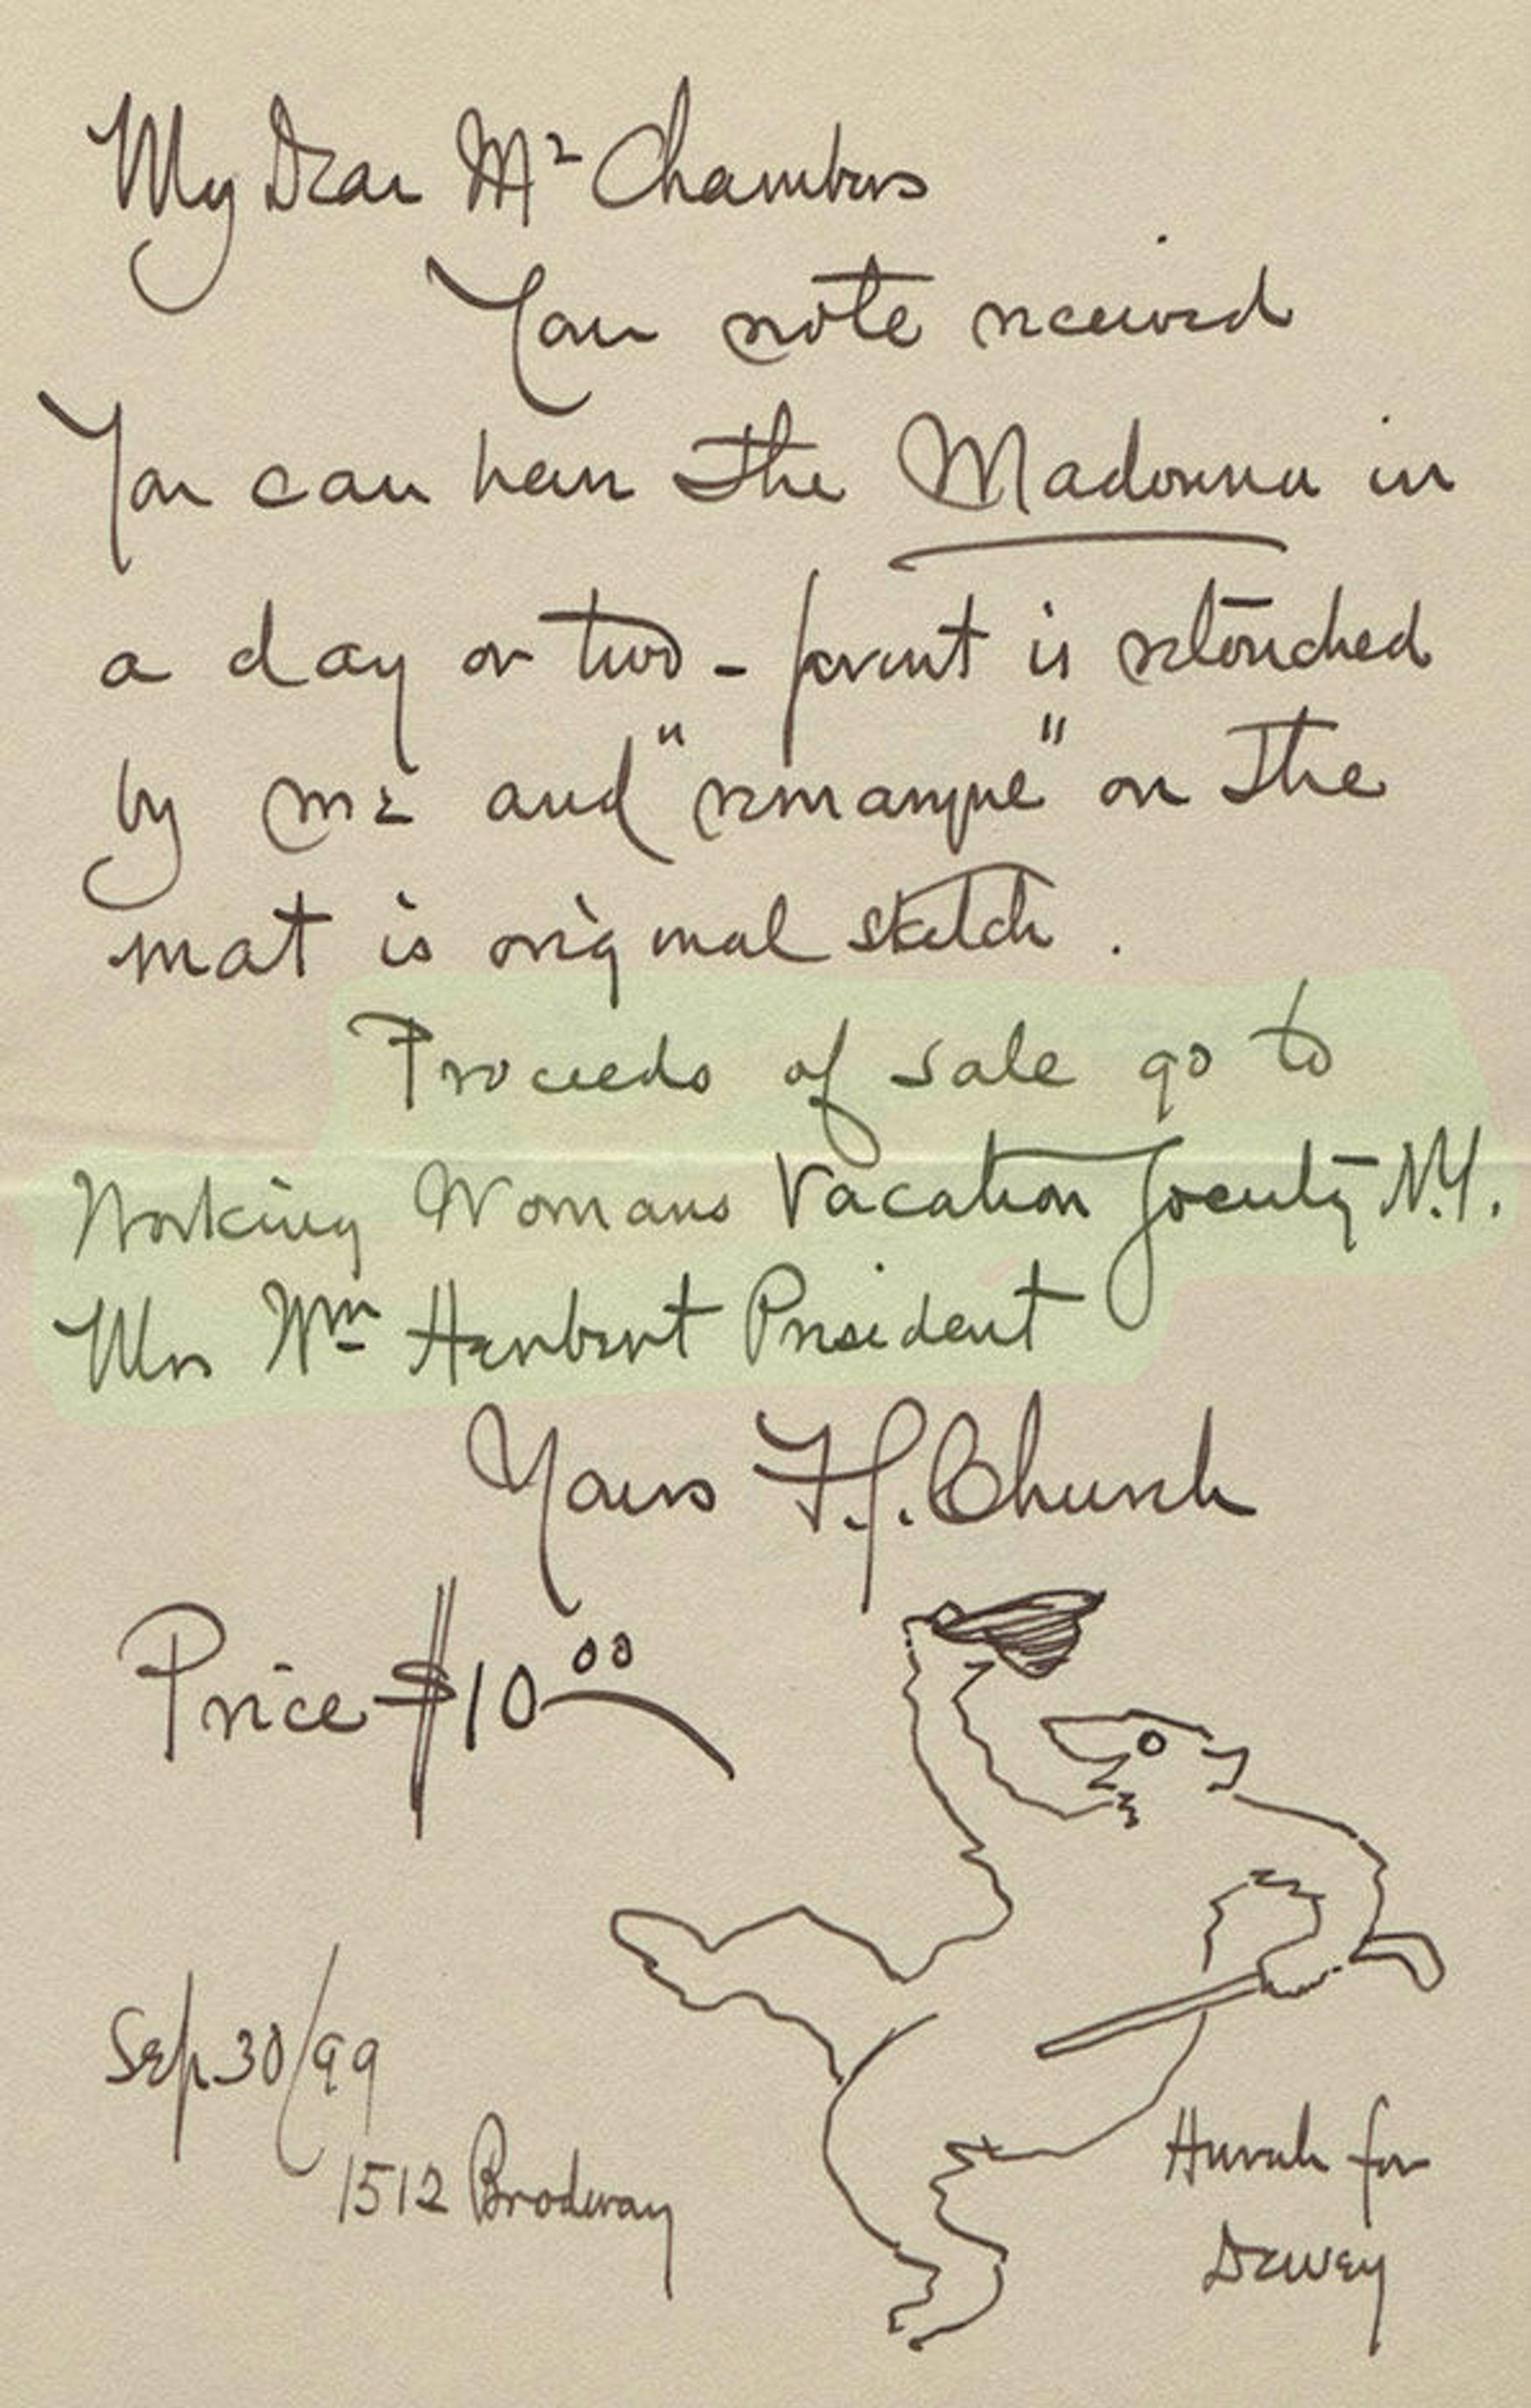 My Dear Mr Chambers
Your note received
You can have the Madonna in
a day or two - print is retouched
by me and "remarque" on the
mat is original sketch.
Proceeds of sale go to
Working Womans Vacation Society N.Y.
Mrs Wm Herbert President
Yours F.S. Church
Price $10 00
Sep 30/99
1512 Brodway
Hurah for
Dewey